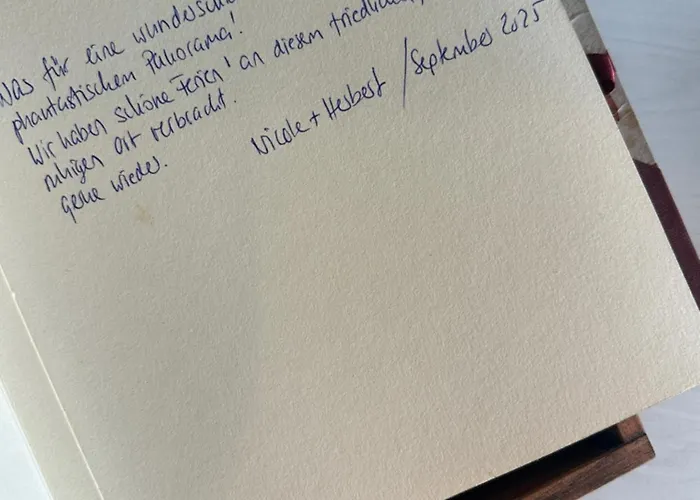 Was für eine wundersch
phantastischen Panorama!
Wir haben schöne Ferien an diesem friedlichen,
ruhigen Ort verbracht.
gerne wieder.
Nicole + Herbert / September 2025